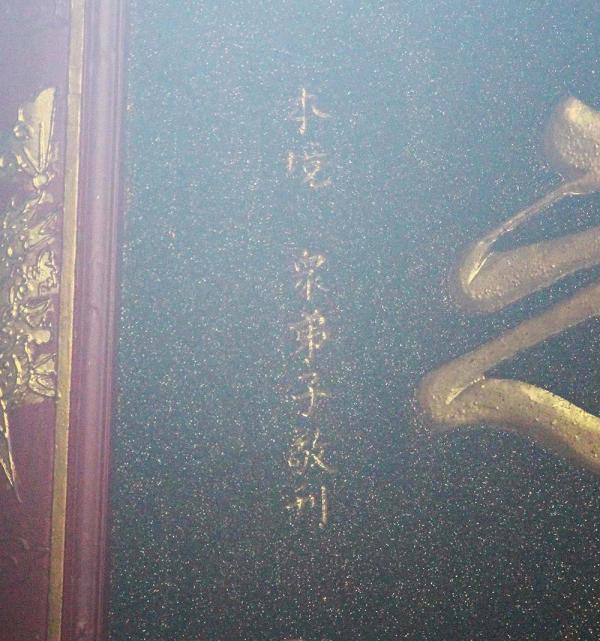 本境 眾弟子敬刊